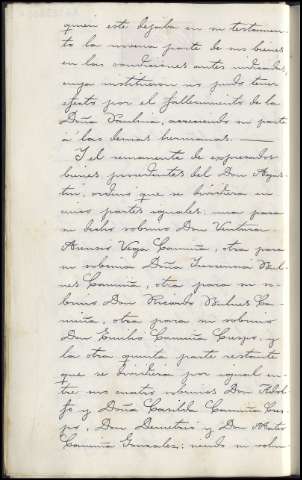 quien este dejaba en su testamen-
to la novena parte de sus bienes
en las condiciones antes indicadas,
cuya institucion no pudo tener
efecto por el fallecimiento de la
Doña Paulina, acreciendo su parte
á las demas hermanas.
Y el remanente de expresados
bienes procedentes del Don Agus-
tin, ordenó que se dividiera en
cinco partes iguales: una para
su dicho sobrino Don
Vega Camiña, otra para
su sobrina Doña
Camiña, otra para su so-
brino Don Ricardo Ca-
miña, otra para su sobrino
Don Emilio Camiña Crespo, y
la otra quinta parte restante
que se dividiera por igual en-
tre sus cuatro sobrinos Don Adol-
fo y Doña Casilda Camiña Cres-
po, Don Demetrio y Don
Camiña Gonzalez; siendo su volun